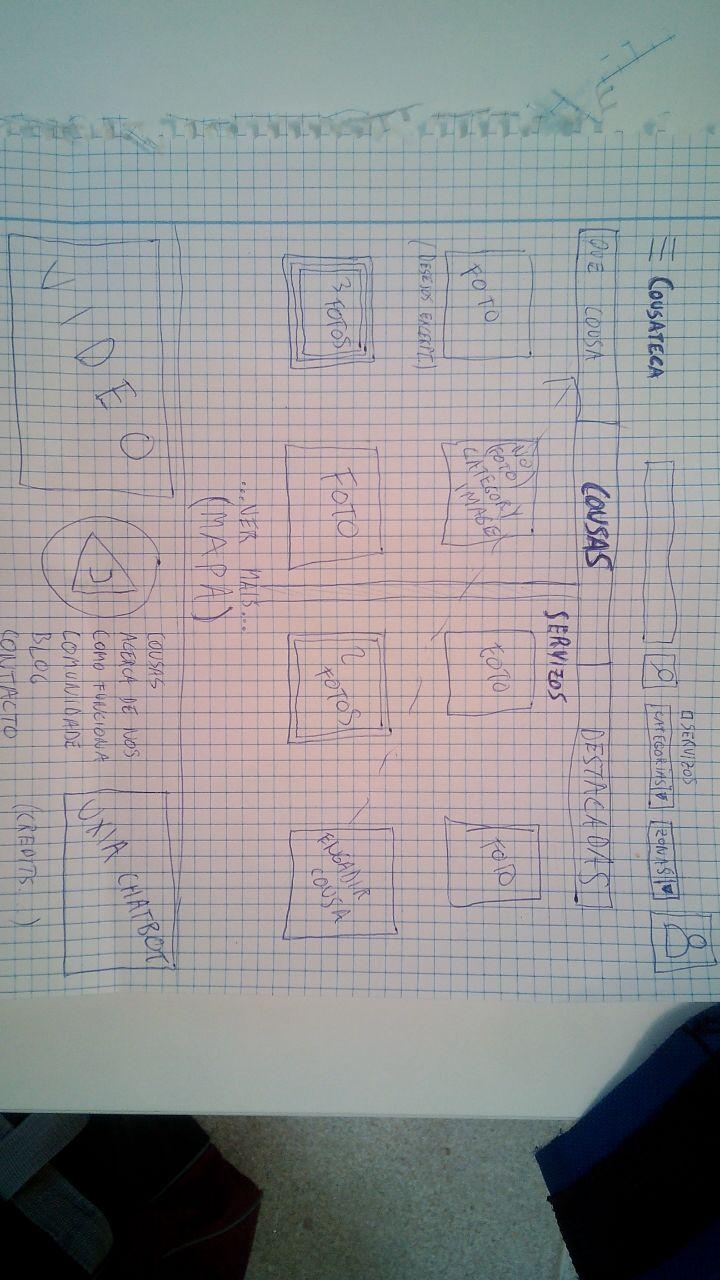 COUSATECA
□ SERVIZOS
CATEGORÍAS
ZONAS
QUE COUSA
COUSAS
DESTACADAS
SERVIZOS
FOTO
NO FOTO
CATEGORY
IMAGE
FOTO
FOTO
3 FOTOS
FOTO
2 FOTOS
ENGADIR
COUSA
...VER MAIS...
(MAPA)
VIDEO
COUSAS
ACERCA DE NOS
COMO FUNCIONA
COMUNIDADE
BLOG
CONTACTO
UXIA CHATBOT
(CREDITS....)